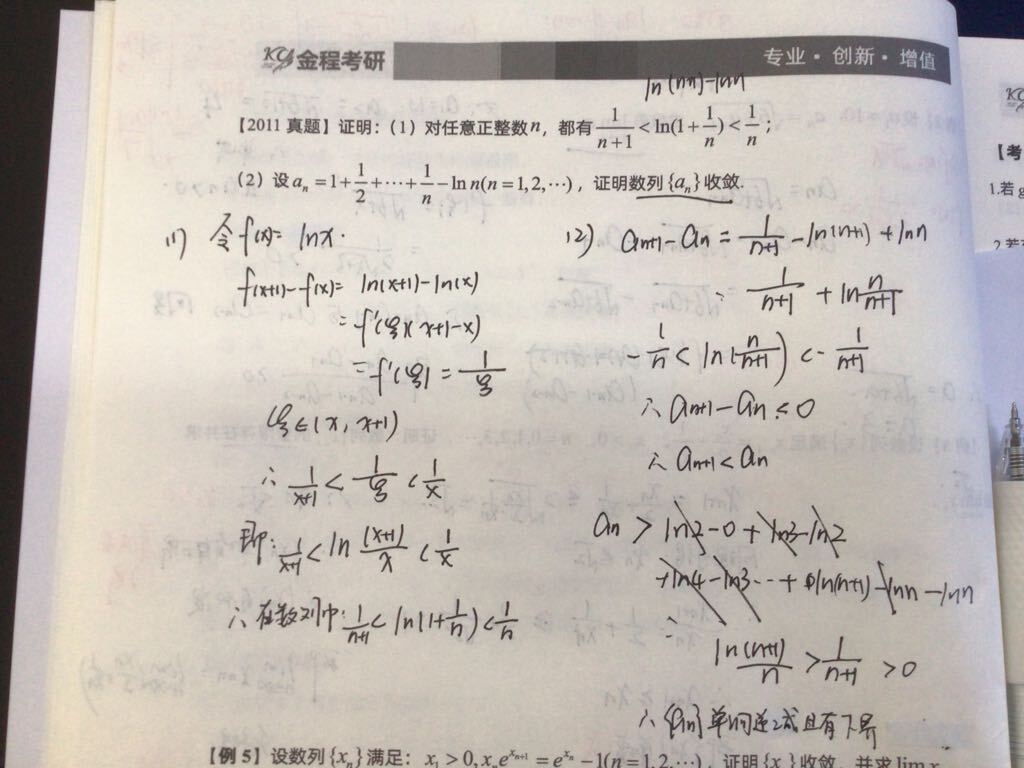 金程考研
专业·创新·增值
ln(n+1)-lnn
【2011 真题】证明：（1）对任意正整数n，都有 1/(n+1) < ln(1+1/n) < 1/n；
（2）设 a_n = 1+1/2+⋯+1/n-ln n(n=1,2,⋯)，证明数列{a_n}收敛.
(1) 令f(x)= lnx.
f(x+1)-f(x)= ln(x+1)-ln(x)
=f'(ξ)(x+1-x)
=f'(ξ)=1/ξ
ξ∈(x, x+1)
∴ 1/(x+1) < 1/ξ < 1/x
即: 1/(x+1) < ln (x+1)/x < 1/x
∴ 在数列中: 1/(n+1) < ln(1+1/n) < 1/n
(2) a_{n+1}-a_n = 1/(n+1) -ln(n+1)+lnn
= 1/(n+1) + ln n/(n+1)
-1/n < ln(n/(n+1)) < -1/(n+1)
∴ a_{n+1}-a_n < 0
∴ a_{n+1} < a_n
a_n > ln2-0+ln3-ln2
+ln4-ln3⋯+ln(n+1)-lnn-lnn
= ln (n+1)/n > 1/(n+1) > 0
∴ {a_n}单调递减且有下界
【例 5】设数列{x_n}满足：x_1 > 0, x_n e^{x_{n+1}} = e^{x_n} -1(n=1,2,⋯)，证明{x_n}收敛，并求lim x
【考
1.若g